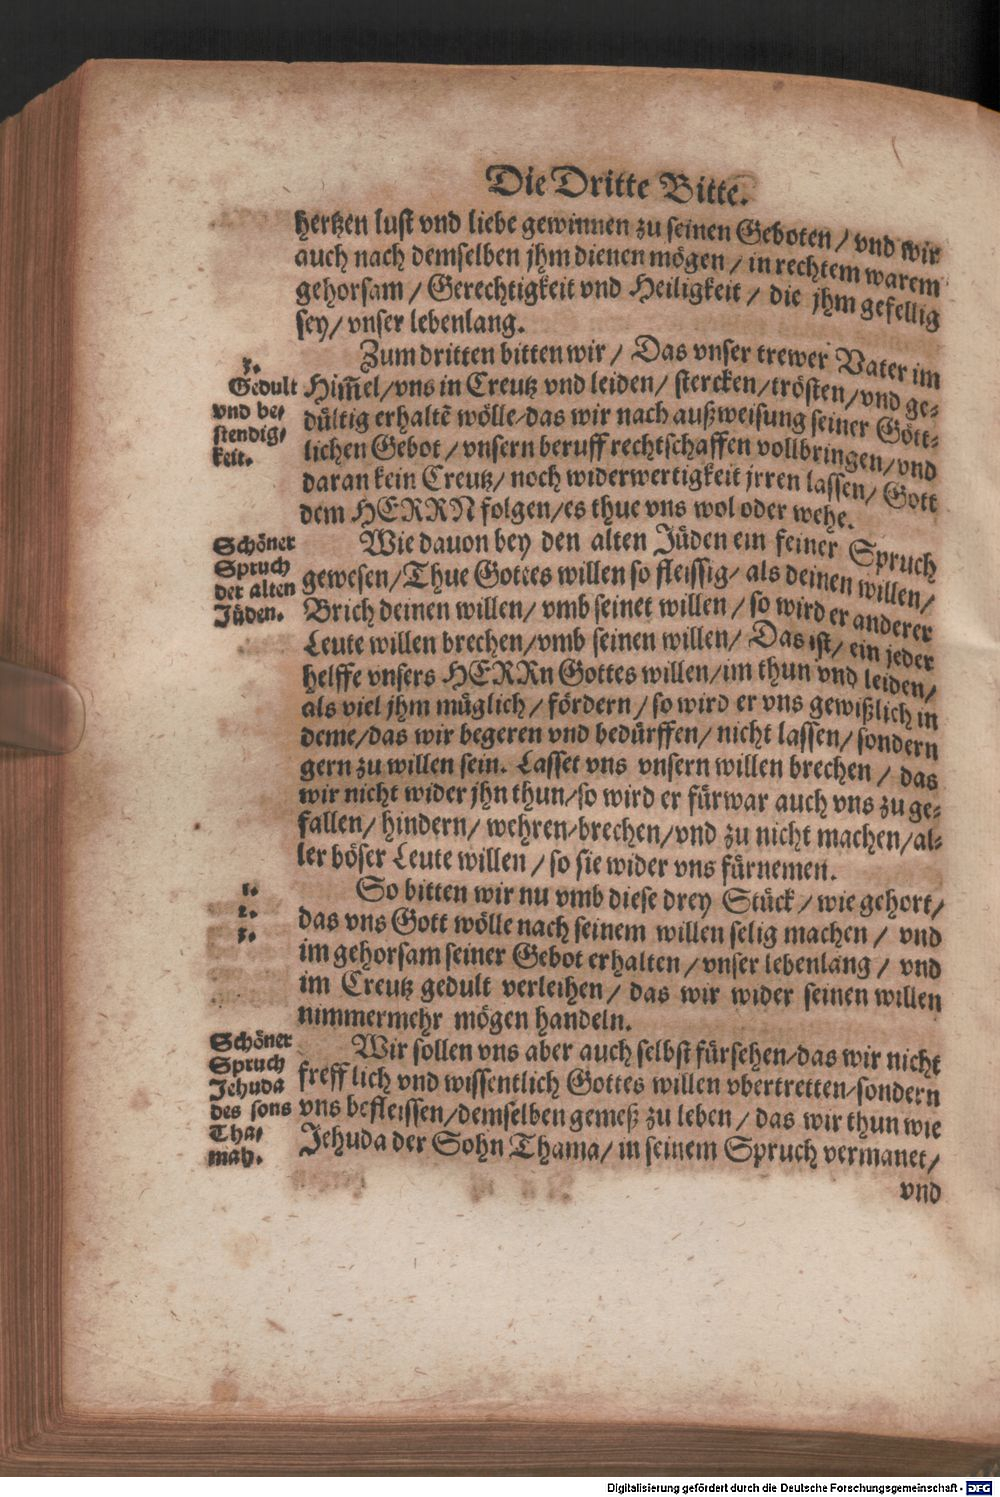 Die Dritte Bitte.
hertzen lust vnd liebe gewinnen zu seinen Geboten / vnd wir
auch nach demselben jhm dienen mögen / in rechtem warem
gehorsam / Gerechtigkeit vnd Heiligkeit / die jhm gefellig
sey / vnser lebenlang.
3.
Gedult
vnd be/
stendig/
keit.
Zum dritten bitten wir / Das vnser trewer Vater im
Him̄el / vns in Creutz vnd leiden / stercken / trösten / vnd ge-
dültig erhaltē wölle / das wir nach außweisung seiner Gött-
lichen Gebot / vnsern beruff rechtschaffen vollbringen / vnd
daran kein Creutz / noch widerwertigkeit jrren lassen / Gott
dem HERRN folgen / es thue vns wol oder wehe.
Schöner
Spruch
der alten
Jüden.
Wie dauon bey den alten Jüden ein feiner Spruch
gewesen / Thue Gottes willen so fleissig / als deinen willen /
Brich deinen willen / vmb seinet willen / so wird er anderer
Leute willen brechen / vmb seinen willen / Das ist / ein jeder
helffe vnsers HERRn Gottes willen / im thun vnd leiden /
als viel jhm müglich / fördern / so wird er vns gewißlich in
deme / das wir begeren vnd bedürffen / nicht lassen / sondern
gern zu willen sein. Lasset vns vnsern willen brechen / das
wir nicht wider jhn thun / so wird er fürwar auch vns zu ge-
fallen / hindern / wehren / brechen / vnd zu nicht machen / al-
ler böser Leute willen / so sie wider vns fürnemen.
1.
2.
3.
So bitten wir nu vmb diese drey Stück / wie gehort /
das vns Gott wölle nach seinem willen selig machen / vnd
im gehorsam seiner Gebot erhalten / vnser lebenlang / vnd
im Creutz gedult verleihen / das wir wider seinen willen
nimmermehr mögen handeln.
Schöner
Spruch
Jehuda
des sons
Tha/
mah.
Wir sollen vns aber auch selbst fürsehen / das wir nicht
frefflich vnd wissentlich Gottes willen vbertretten / sondern
vns befleissen / demselben gemeß zu leben / das wir thun wie
Jehuda der Sohn Thama / in seinem Spruch vermanet /
vnd
Digitalisierung gefördert durch die Deutsche Forschungsgemeinschaft - DFG